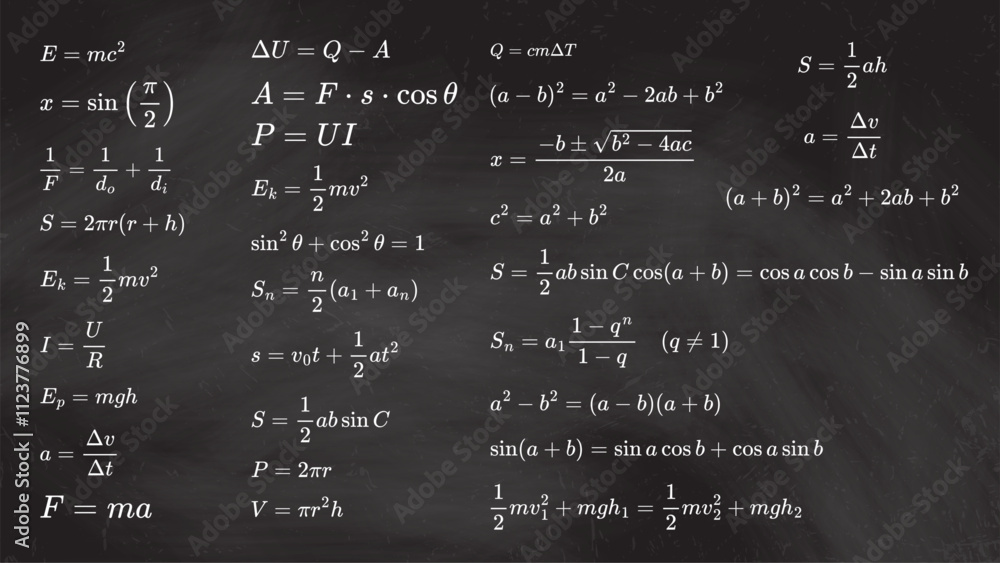 E = mc²
x = sin (π/2)
1/F = 1/dₒ + 1/dᵢ
S = 2πr(r + h)
Eₖ = 1/2 mv²
I = U/R
Eₚ = mgh
a = Δv/Δt
F = ma
ΔU = Q − A
A = F · s · cos θ
P = UI
Eₖ = 1/2 mv²
sin² θ + cos² θ = 1
Sₙ = n/2 (a₁ + aₙ)
s = v₀t + 1/2 at²
S = 1/2 ab sin C
P = 2πr
V = πr²h
Q = cmΔT
(a − b)² = a² − 2ab + b²
x = (−b ± √(b² − 4ac))/2a
c² = a² + b²
S = 1/2 ab sin C cos(a + b) = cos a cos b − sin a sin b
Sₙ = a₁ (1 − qⁿ)/(1 − q) (q ≠ 1)
a² − b² = (a − b)(a + b)
sin(a + b) = sin a cos b + cos a sin b
1/2 mv₁² + mgh₁ = 1/2 mv₂² + mgh₂
S = 1/2 ah
a = Δv/Δt
(a + b)² = a² + 2ab + b²
Adobe Stock | #1123776899